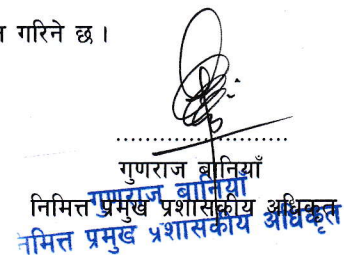 गरिने छ ।
गुणराज बानियाँ
निमित्त प्रमुख प्रशासकीय अधिकृत
गुणराज बानियाँ
निमित्त प्रमुख प्रशासकीय अधिकृत